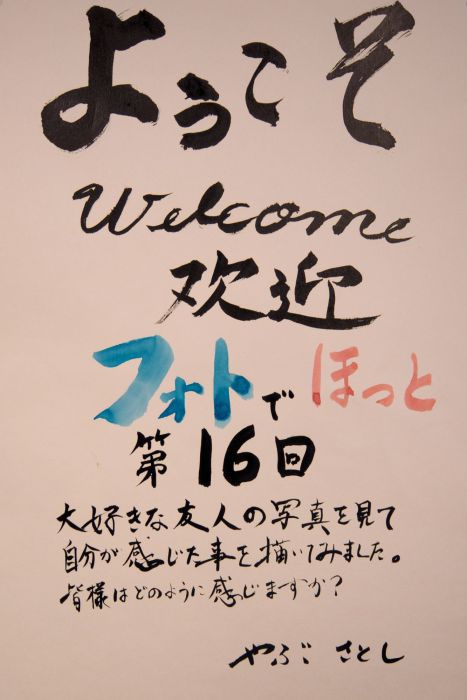 ようこそ
Welcome
欢迎
フォトで ほっと
第16回
大好きな友人の写真を見て
自分が感じた事を描いてみました。
皆様はどのように感じますか？
やぶご さとし